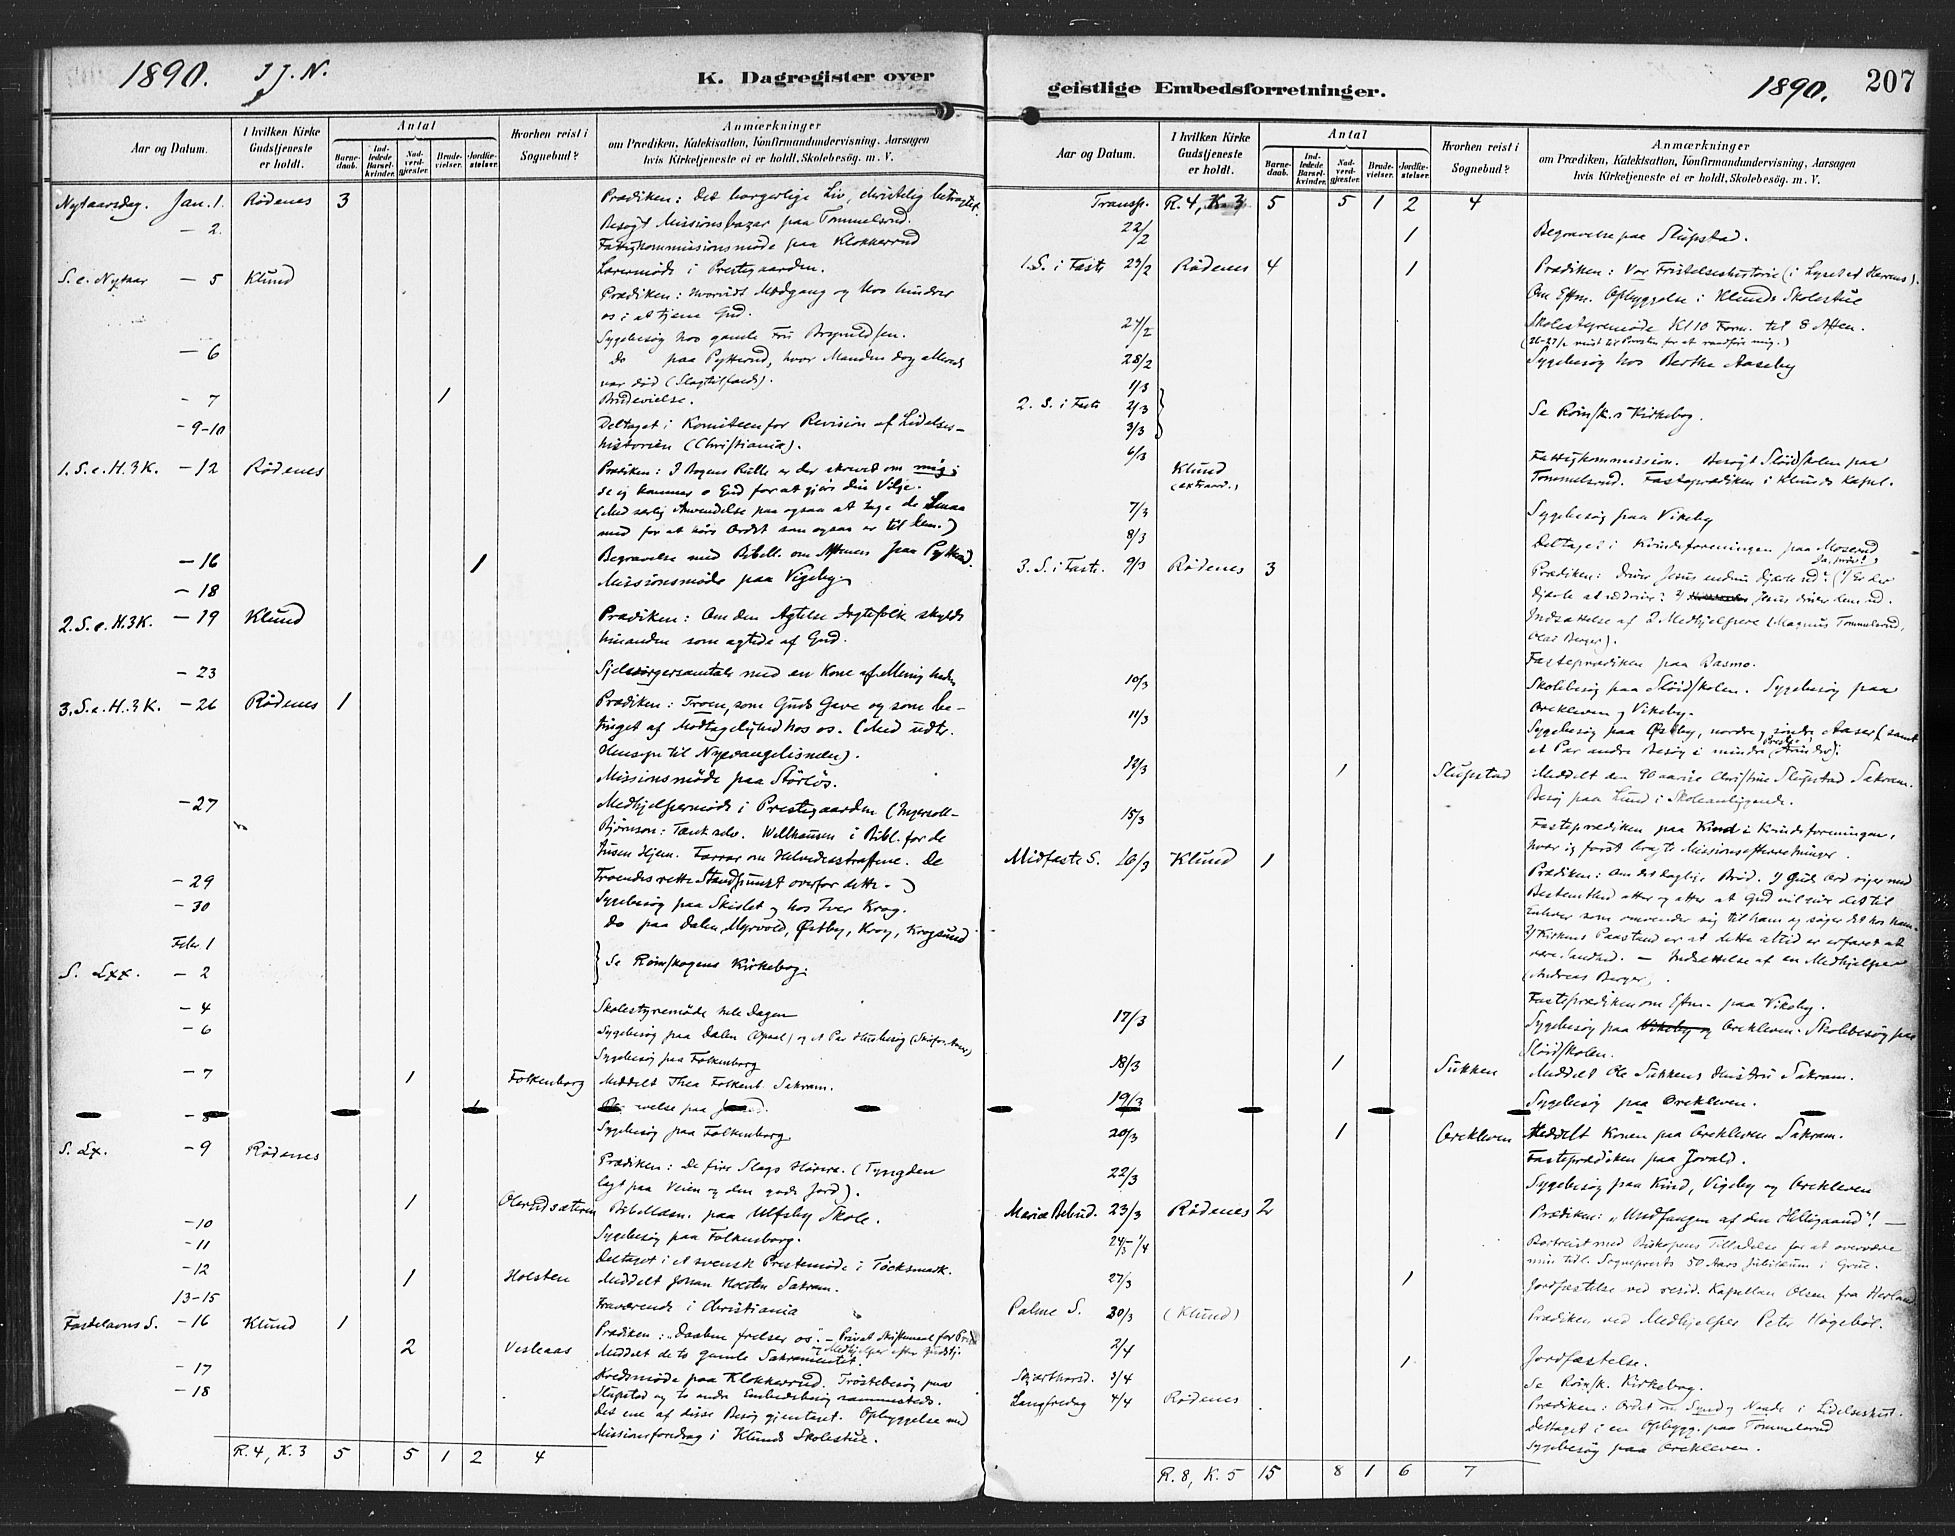 1890. I J. N. K. Dagregister over
Aar og Datum.
I hvilken Kirke Gudstjeneste er holdt.
Antal
Barnedaab. Indledede Barselkvinder. Nadverdgjester. Brudevielser. Jordfæstelser.
Hvorhen reist i Sognebud?
Anmærkninger
om Prædiken, Katekisation, Konfirmandundervisning, Aarsagen
hvis Kirketjeneste ei er holdt, Skolebesøg. m. V.
Nytaarsdag. Jan. 1. Rødenes 3 Prædiken: Det borgerlige Liv, christelig betragtet.
- 2. Besøgt Missionsbazar paa Tommelsrud.
Fattigkommissionsmøde paa Klokkerrud
Lærermøde i Prestegaarden.
S. e. Nytaar - 5 Klund Prædiken: Hvorvidt Medgang og hvo hindrer
os i at tjene Gud.
Sygebesøg hos gamle Fru Brynildsen.
- 6 Do paa Pytterud, hvor Manden dog allerede
var død (Slagtilfælde).
- 7 1 Brudevielse.
- 9-10 Deltaget i Komiteen for Revision af Lidelses-
historien (Christiania).
1. S. e. H. 3 K. - 12 Rødenes Prædiken: I Bogens Rulle er der skrevet om mig;
se jeg kommer o Gud for at gjøre din Vilje.
(Med særlig Anvendelse paa ogsaa at tage de Smaa
med for at høre Ordet som ogsaa er til dem.)
- 16 1 Begravelse med Bibell. om Aftenen paa Pytterud.
- 18 Missionsmøde paa Vigeby.
2. S. e. H. 3 K. - 19 Klund Prædiken: Om den Agtelse Ægtefolk skylde
hinanden som agtede af Gud.
- 23 Sjelesørgersamtale med en Kone af Menigheden
3. S. e. H. 3 K. - 26 Rødenes 1 Prædiken: Troen, som Guds Gave og som be-
tinget af Modtagelighed hos os. (Med udtr.
Hensyn til Nyevangelismen).
Missionsmøde paa Störlös.
- 27 Medhjelpermøde i Prestegaarden (Ingersoll-
Bjørnson: Tænk selv. Wellhausen i Bibl. for de
tusen Hjem. Farrar om Helvedesstraffene. De
Troendes rette Standpunkt overfor dette.)
- 29 Sygebesøg paa Skislet og hos Iver Krog.
- 30 Do paa Dalen, Myrvold, Østby, Krog, Krogsund
Febr. 1
S. Lxx. - 2 Se Römskogens Kirkebog.
- 4 Skolestyremøde hele Dagen
- 6 Sygebesøg paa Dalen og et Par Husbesøg
Sygebesøg paa Folkenborg
- 7 1 Folkenborg Meddelt Thea Folkenb. Sakram.
- 8 1
Sygebesøg paa Folkenborg
S. Lx. - 9 Rødenes Prædiken: De fire Slags Hørere. (Tyngden
lagt paa Veien og den gode Jord).
1 Olerudsæteren Bibellæsn. paa Ulfsby Skole.
- 10 Sygebesøg paa Folkenborg.
- 11 Deltaget i et svensk Prestemøde i Töcksmark.
- 12 1 Holsten Meddelt Johan Holsten Sakram.
13-15 Fraværende i Christiania
Fastelavns S. - 16 Klund 1 Prædiken: „Daaben frelser os". - Privat Skiftemaal for
og Medhjelper efter Gudstj.
2 Vestenaas Meddelt de to gamle Sakramentet.
- 17 Kredsmøde paa Klokkerrud. Trøstebesøg paa
- 18 Slupstad og to andre Embedsbesøg sammesteds.
Det ene af disse Besøg gjentaget. Opbyggelse med
Missionsforedrag i Klunds Skolestue.
R. 4, K. 3 5 5 1 2 4
geistlige Embedsforretninger. 1890. 207
Aar og Datum.
I hvilken Kirke Gudstjeneste er holdt.
Antal
Barnedaab. Indledede Barselkvinder. Nadverdgjester. Brudevielser. Jordfæstelser.
Hvorhen reist i Sognebud?
Anmærkninger
om Prædiken, Katekisation, Konfirmandundervisning, Aarsagen
hvis Kirketjeneste ei er holdt, Skolebesøg. m. V.
Transp. R. 4, K. 3 5 5 1 2 4
22/2 1 Begravelse paa Slupstad.
1. S. i Faste 23/2 Rødenes 4 1 Prædiken: Vor Fristelseshistorie (i Lyset af Herrens).
Om Eftm. Opbyggelse i Klunds Skolestue
24/2 Skolestyremøde Kl 10 Form. til 8 Aften.
(26-27/2 reist til Provsten for at raadføre mig.)
28/2 Sygebesøg hos Berthe Aaseby
1/3
2. S. i Faste 2/3 Se Römsk.s Kirkebog.
3/3
6/3 Klund (extraord.) Fattigkommission. Besøgt Sløidskolen paa
Tommelsrud. Fasteprædiken i Klunds Kapel.
7/3 Sygebesøg paa Vikeby
8/3 Deltaget i Kvindeforeningen paa Moserud
3. S. i Faste. 9/3 Rødenes 3 Prædiken: Driver Jesus endnu Djævle ud? (1) Er der
Djævle at uddrive? 2) Jesus driver dem ud.
Indsættelse af 2 Medhjelpere (Magnus Tommelsrud,
Olai Berger).
Fasteprædiken paa Basmo.
10/3 Skolebesøg paa Sløidskolen. Sygebesøg paa
Orekleven og Vikeby.
11/3 Sygebesøg paa Østby, nordre og søndre Aaser (samt
et Par andre Besøg i mindre Ærinder).
12/3 1 Slupstad Meddelt den 90 aarige Christine Slupstad Sakram.
Besøg paa Lund i Skoleanliggende.
15/3 Fasteprædiken paa Kind i Kvindeforeningen,
hvor jeg først bragte Missionsefterretninger.
Midfaste S. 16/3 Klund 1 Prædiken: Om det daglige Brød. 1) Guds Ord siger med
Bestemthed atter og atter at Gud vil give det til
Enhver som omvender sig til ham og søger det hos ham.
2) Kirkens Paastand er at dette altid er erfaret at
være Sandhed. - Indsættelse af en Medhjelper
(Andreas Berger).
Fasteprædiken om Eftm. paa Vikeby.
17/3 Sygebesøg paa Vikeby og Orekleven. Skolebesøg paa
Sløidskolen.
18/3 1 Sukken Meddelt Ole Sukkens Hustru Sakram.
19/3 Sygebesøg paa Orekleven.
20/3 1 Orekleven Meddelt Konen paa Orekleven Sakram.
Fasteprædiken paa Jovald.
22/3 Sygebesøg paa Kind, Vigeby og Orekleven
Mariæ Bebud. 23/3 Rødenes 2 Prædiken: „Undfangen af den Helligaand"! -
24/3-1/4 Bortreist med Biskopens Tilladelse for at overvære
min tidl. Sogneprests 50 Aars Jubilæum i Grue.
27/3 1 Jordfæstelse ved resid. Kapellan Olsen fra Herland
Palme S. 30/3 (Klund) Prædiken ved Medhjelper Peter Høgebøl.
2/4 1 Jordfæstelse.
Skjærthorsd. 3/4 Se Römsk. Kirkebog.
Langfredag 4/4 Rødenes Prædiken: Ordet om Synd og Naade i Lidelseshist.
Deltaget i en Opbygg. paa Tommelsrud
Sygebesøg paa Orekleven.
R. 8, K. 5 15 8 1 6 7